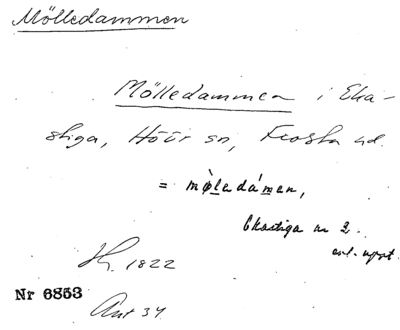 Mölledammen
Mölledammen i Eka-
stiga, Höör sn, Frosta hd.
= mø̀ledámen,
Ekastiga nr 2.
enl. uppt.
H. 1822
Nr 6853
Ant 34.